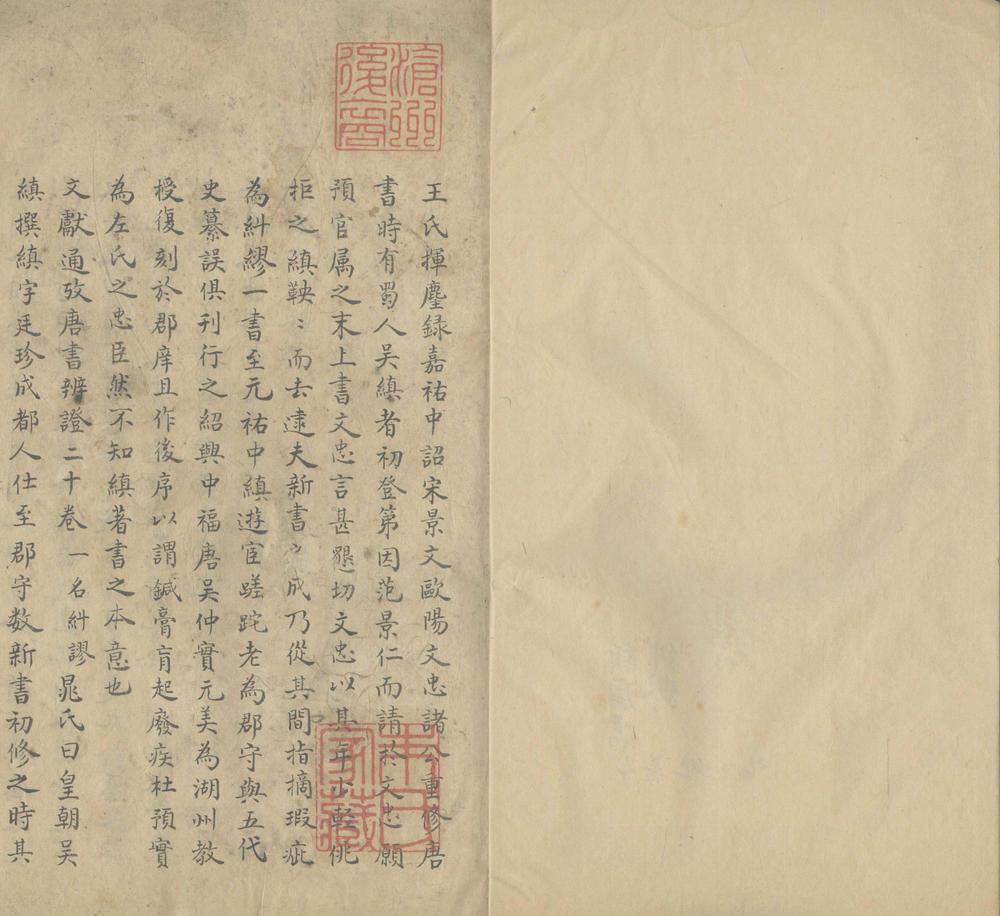 王氏揮麈録嘉祐中詔宋景文歐陽文忠諸公重修唐
書時有蜀人吳縝者初登第因范景仁而請於文忠願
預官属之末上書文忠言甚懇切文忠以其年少輕佻
拒之縝鞅〻而去逮夫新書之成乃從其間指摘瑕疵
為糾繆一書至元祐中縝遊宦蹉跎老為郡守與五代
史纂誤俱刊行之紹興中福唐吳仲實元美為湖州教
授復刻於郡庠且作後序以謂鍼膏肓起廢疾杜預實
為左氏之忠臣然不知縝著書之本意也
文獻通攷唐書辨證二十卷一名糾謬晁氏曰皇朝吳
縝撰縝字廷珍成都人仕至郡守数新書初修之時其